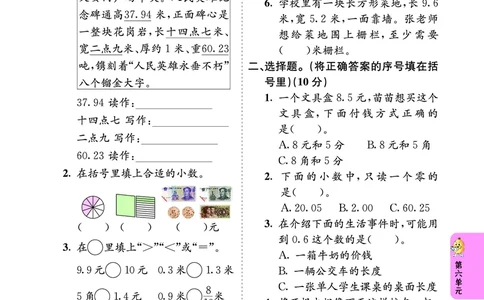 念碑通高37.94 米,正面碑心是
一整块花岗岩,长十四点七米、
宽二点九米、厚约 1 米、重60.23
吨,镌刻着“人民英雄永垂不朽”
八个鎏金大字。
37.94 读作:
十四点七 写作:
二点九 写作:
60.23 读作:
2. 在括号里填上合适的小数。
( ) ( ) ( )元
3. 在○里填上“>”“<”或“=”。
9.9 元○10 元 0.3 米○1.3 米
5 角○1.4 元 0.9 米○8 米
6. 学校里有一块长方形菜地,长 9.6
米,宽 5.2 米,一面靠墙。张老师
想给菜地围上栅栏,至少需要
( )米栅栏。
二、选择题。(将正确答案的序号填在括
号里)(10 分)
1. 一个文具盒 8.5 元,苗苗想买这个
文具盒,下面付钱方式正确的
是( )。
A. 8 元和 5 分 B. 8 元和 5 角
C. 8 角和 5 分
2. 下面的小数中,只读一个零的
是( )。
A. 20.05 B. 2.00 C. 60.25
3. 在介绍下面的生活事件时,可能用
到 0.6 这个数的是( )。
A. 一箱牛奶的价钱
B. 一辆公交车的长度
C. 一张单人学生课桌的桌面长度
第六单元